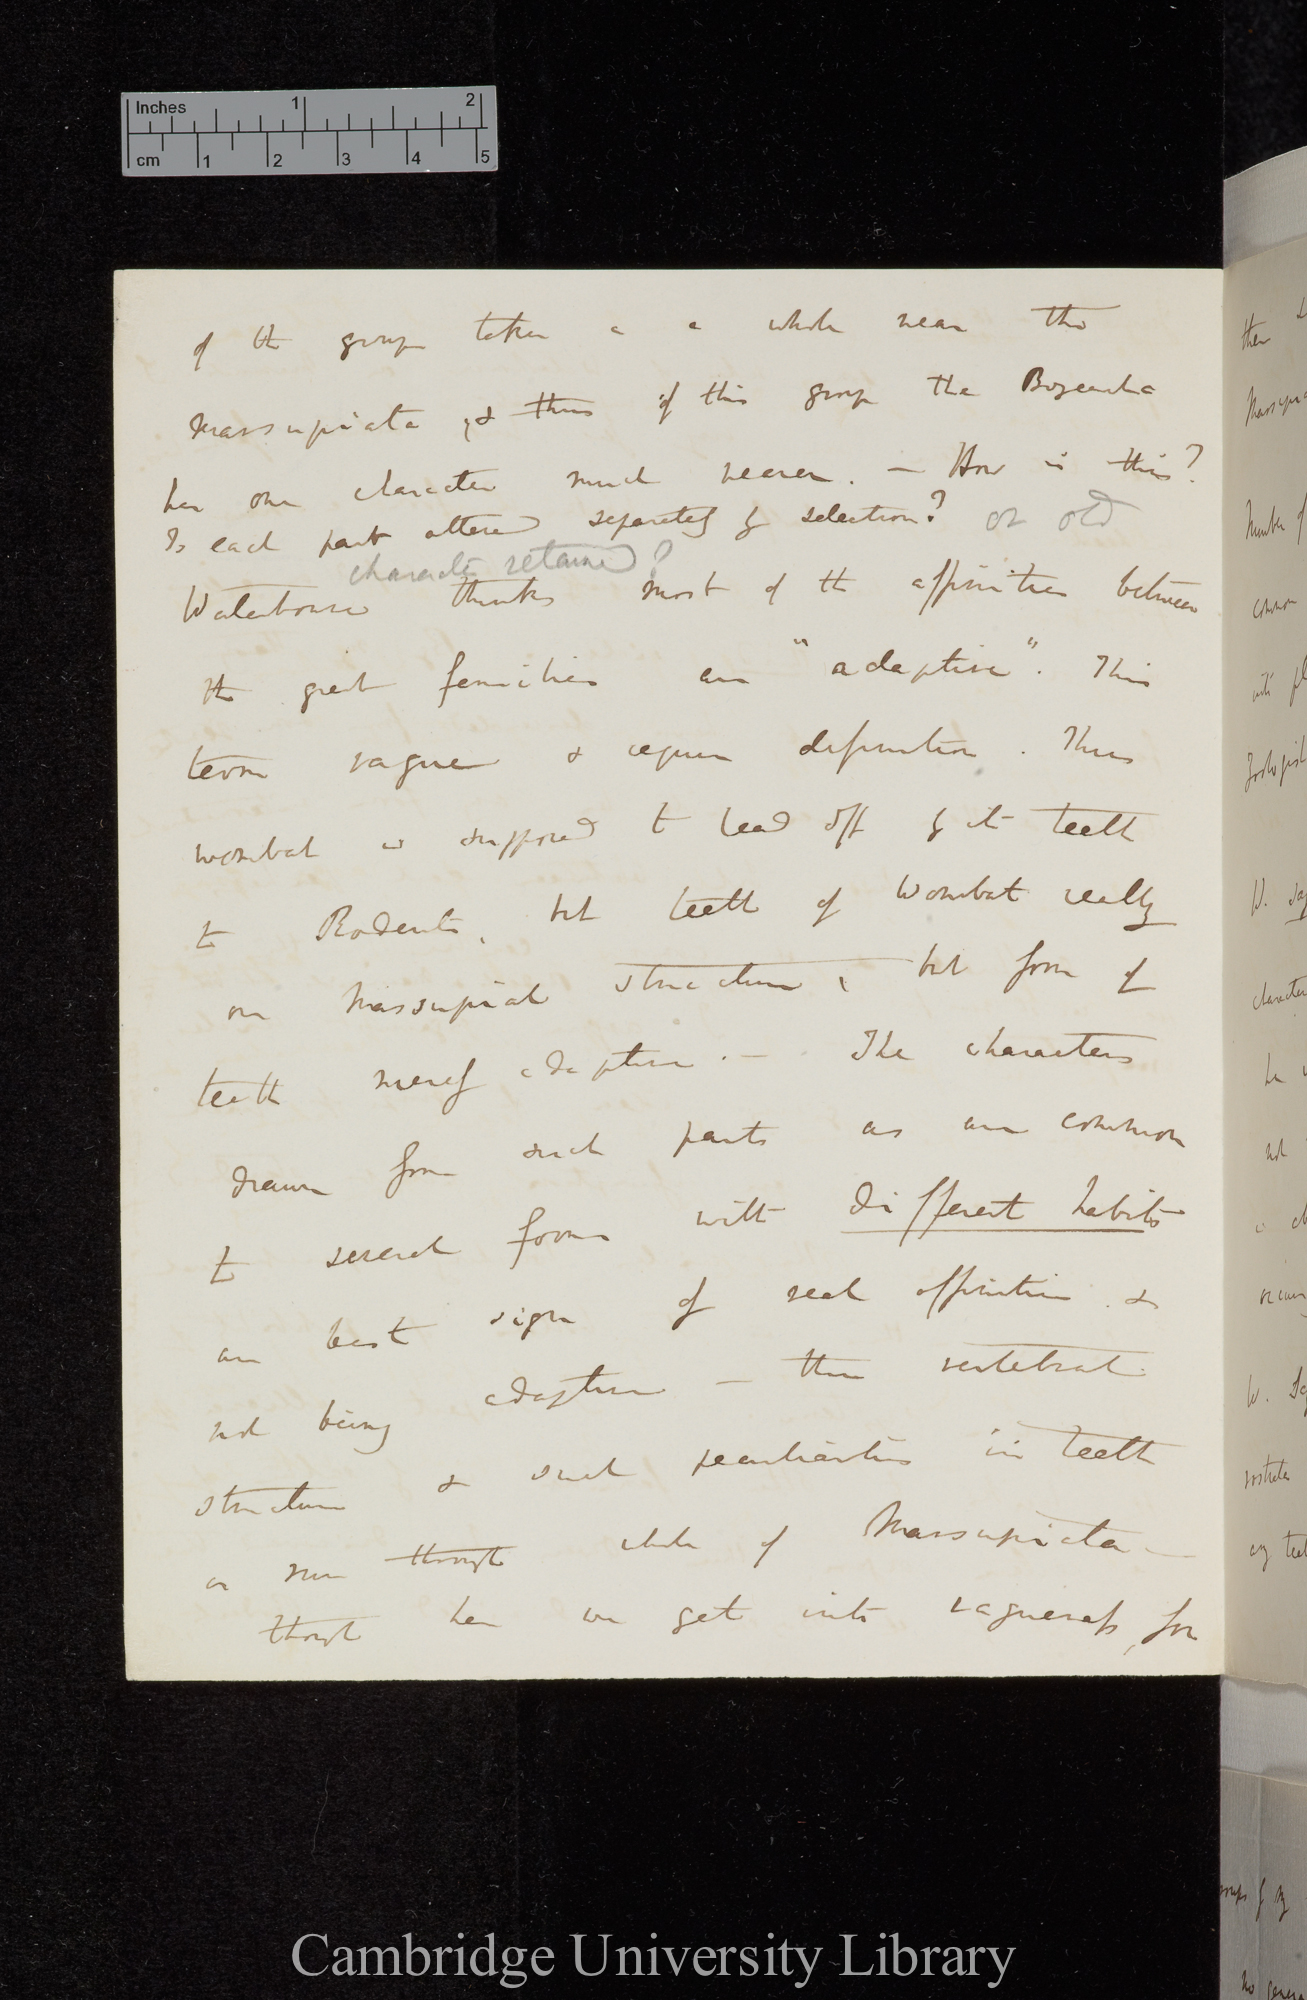 Inches 1 2
cm 1 2 3 4 5
of the group taken as a whole near the
Marsupiata, & thus of this group the Bizcacha
has one character much nearer. — How is this?
Is each part altered separately by selection? or old
character retained?
Waterhouse thinks most of the affinities between
the great families are "adaptive". This
term vague & requires definition. Thus
wombat is supposed to lead off by its teeth
to Rodents, but teeth of Wombat really
on Marsupial structure, but form of
teeth merely adaptive. — The characters
drawn from such parts as are common
to several forms with different habits
are best sign of real affinities &
not being adaptive — thus vertebral
structure & such peculiarities in teeth
as run through whole of Marsupiata —
though here we get into vagueness, for
then
Marsupia
Number of
common
with
Zoologist
W. say
character
he
not
is
occurs
W.
rostrata
any teet
groups of by
No genera
Cambridge University Library